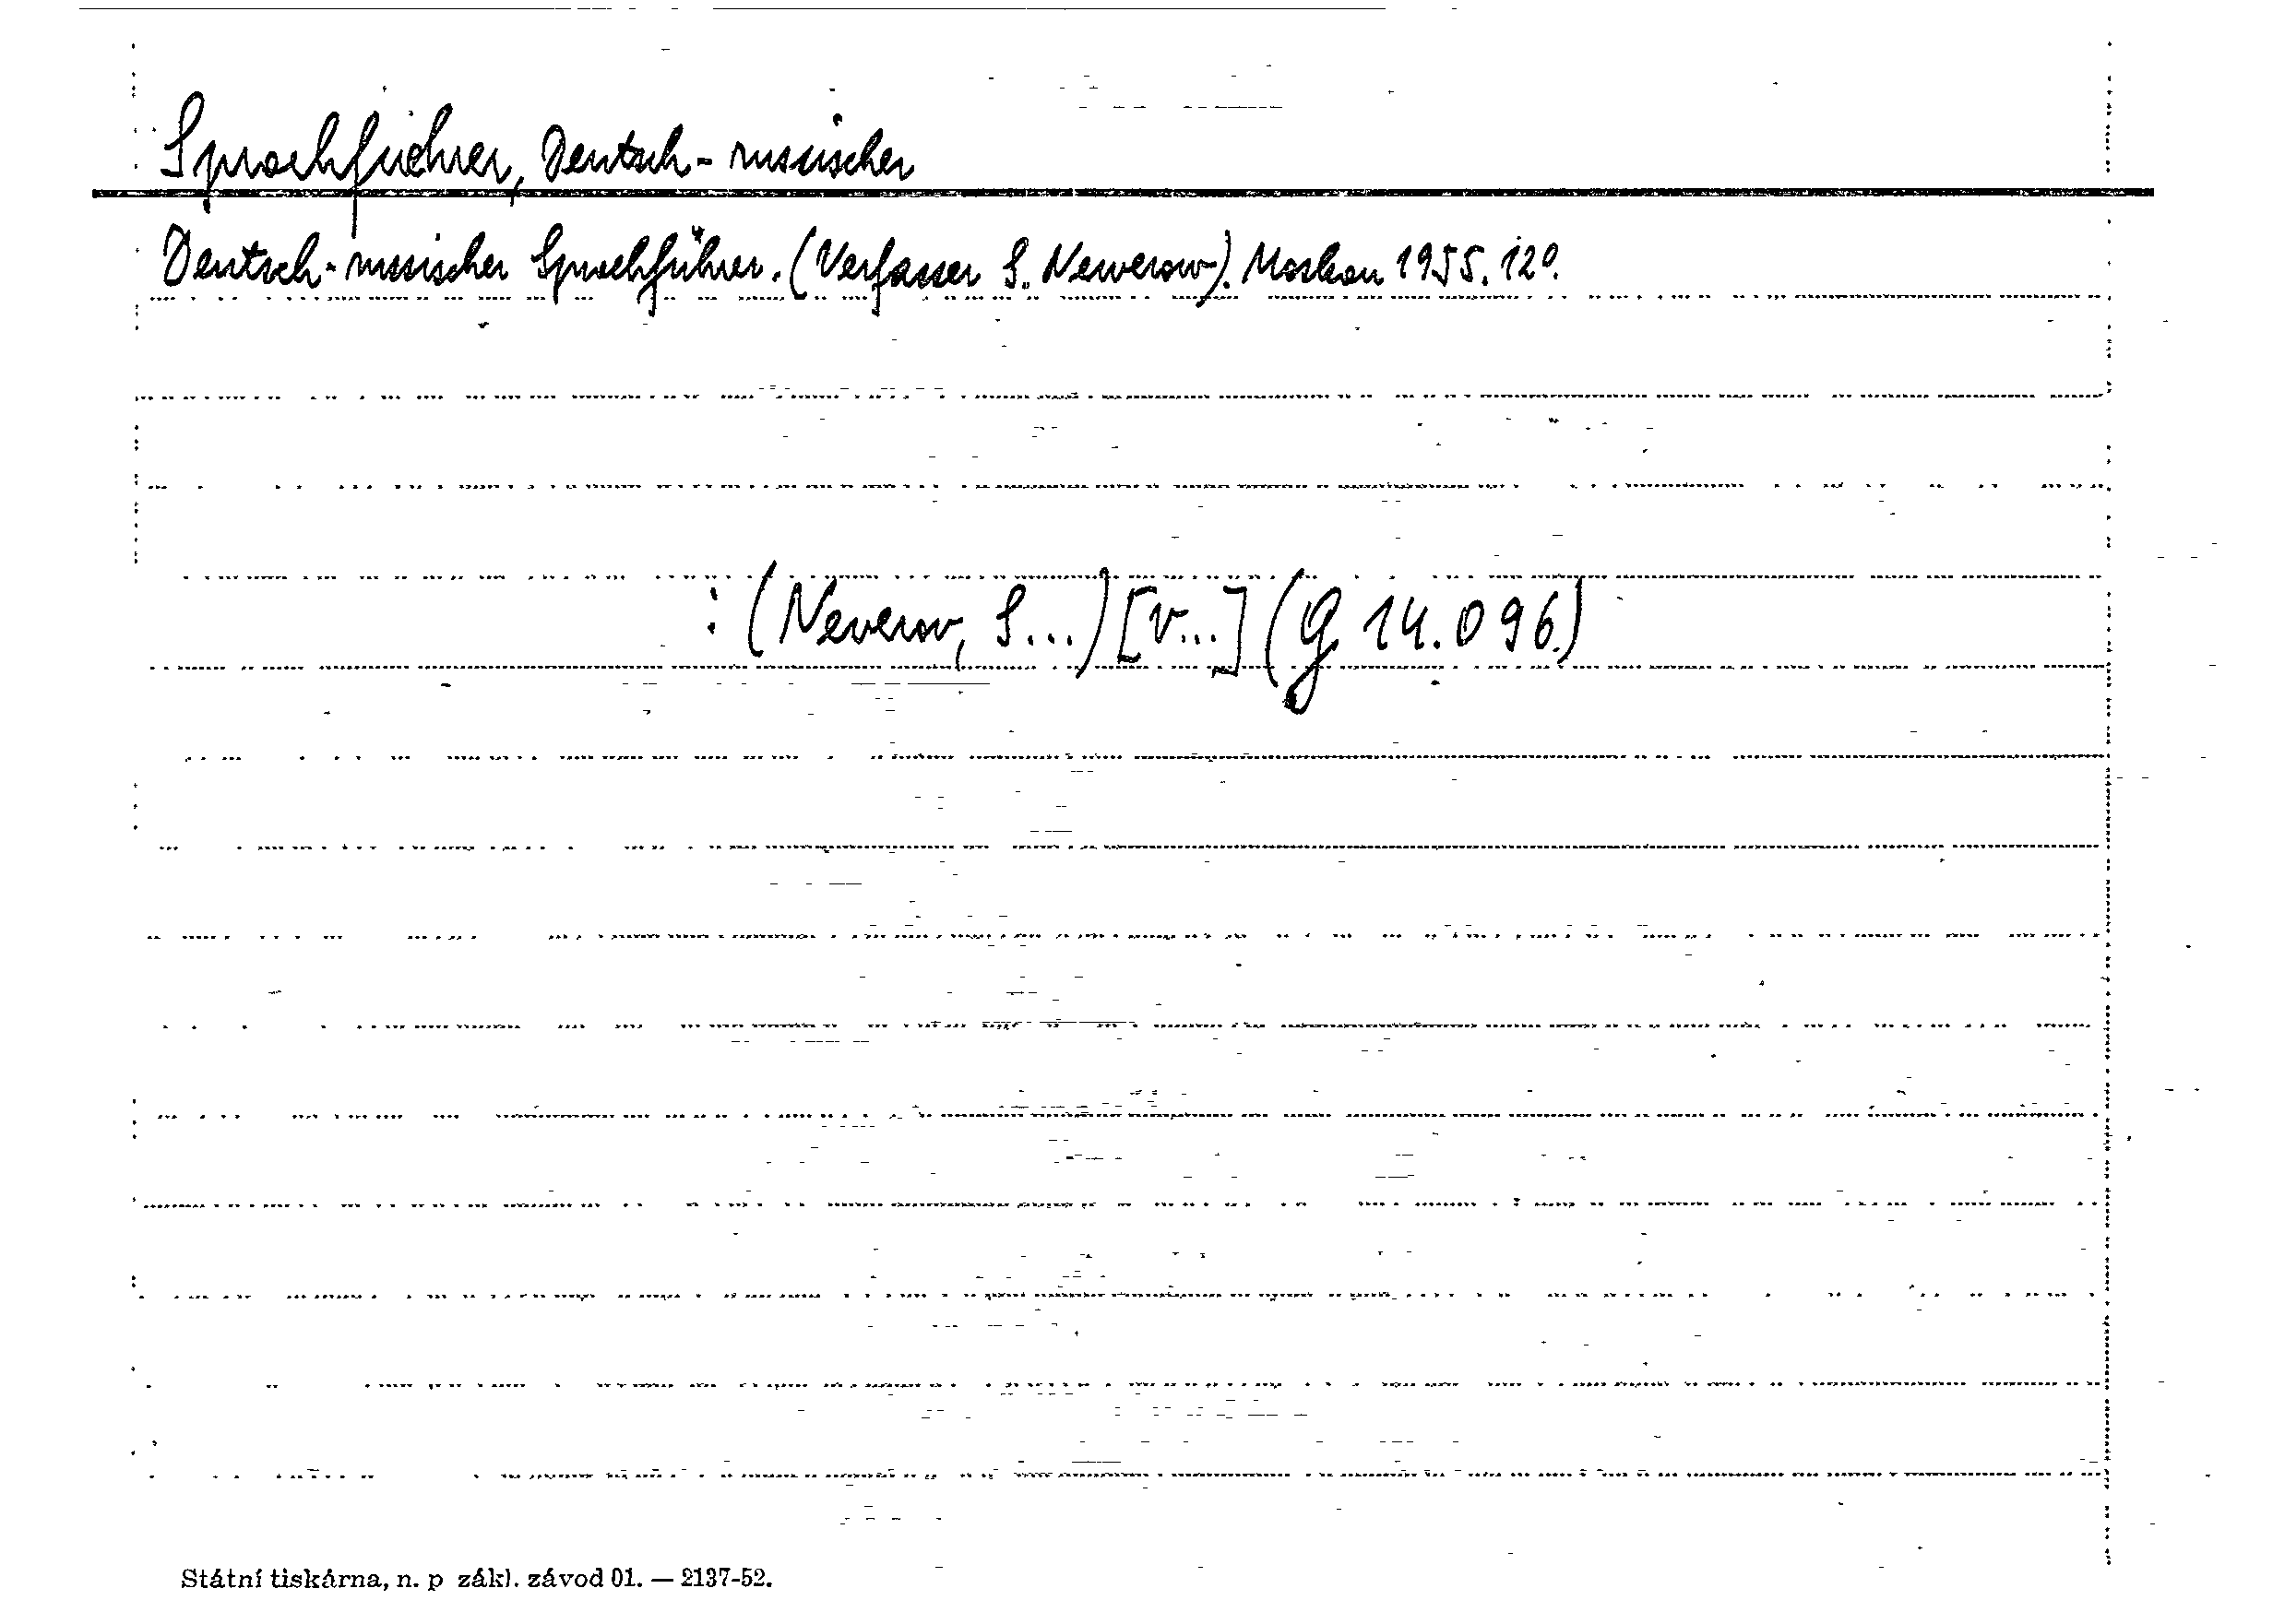 Sprachfuehrer, Deutsch-russischer
Deutsch-russischer Sprachführer. (Verfasser S. Newerow). Moskau 1955. 12°.
: (Neverov, S...) [V...] (G 14.096)
Státní tiskárna, n. p zákl. závod 01. — 2137-52.